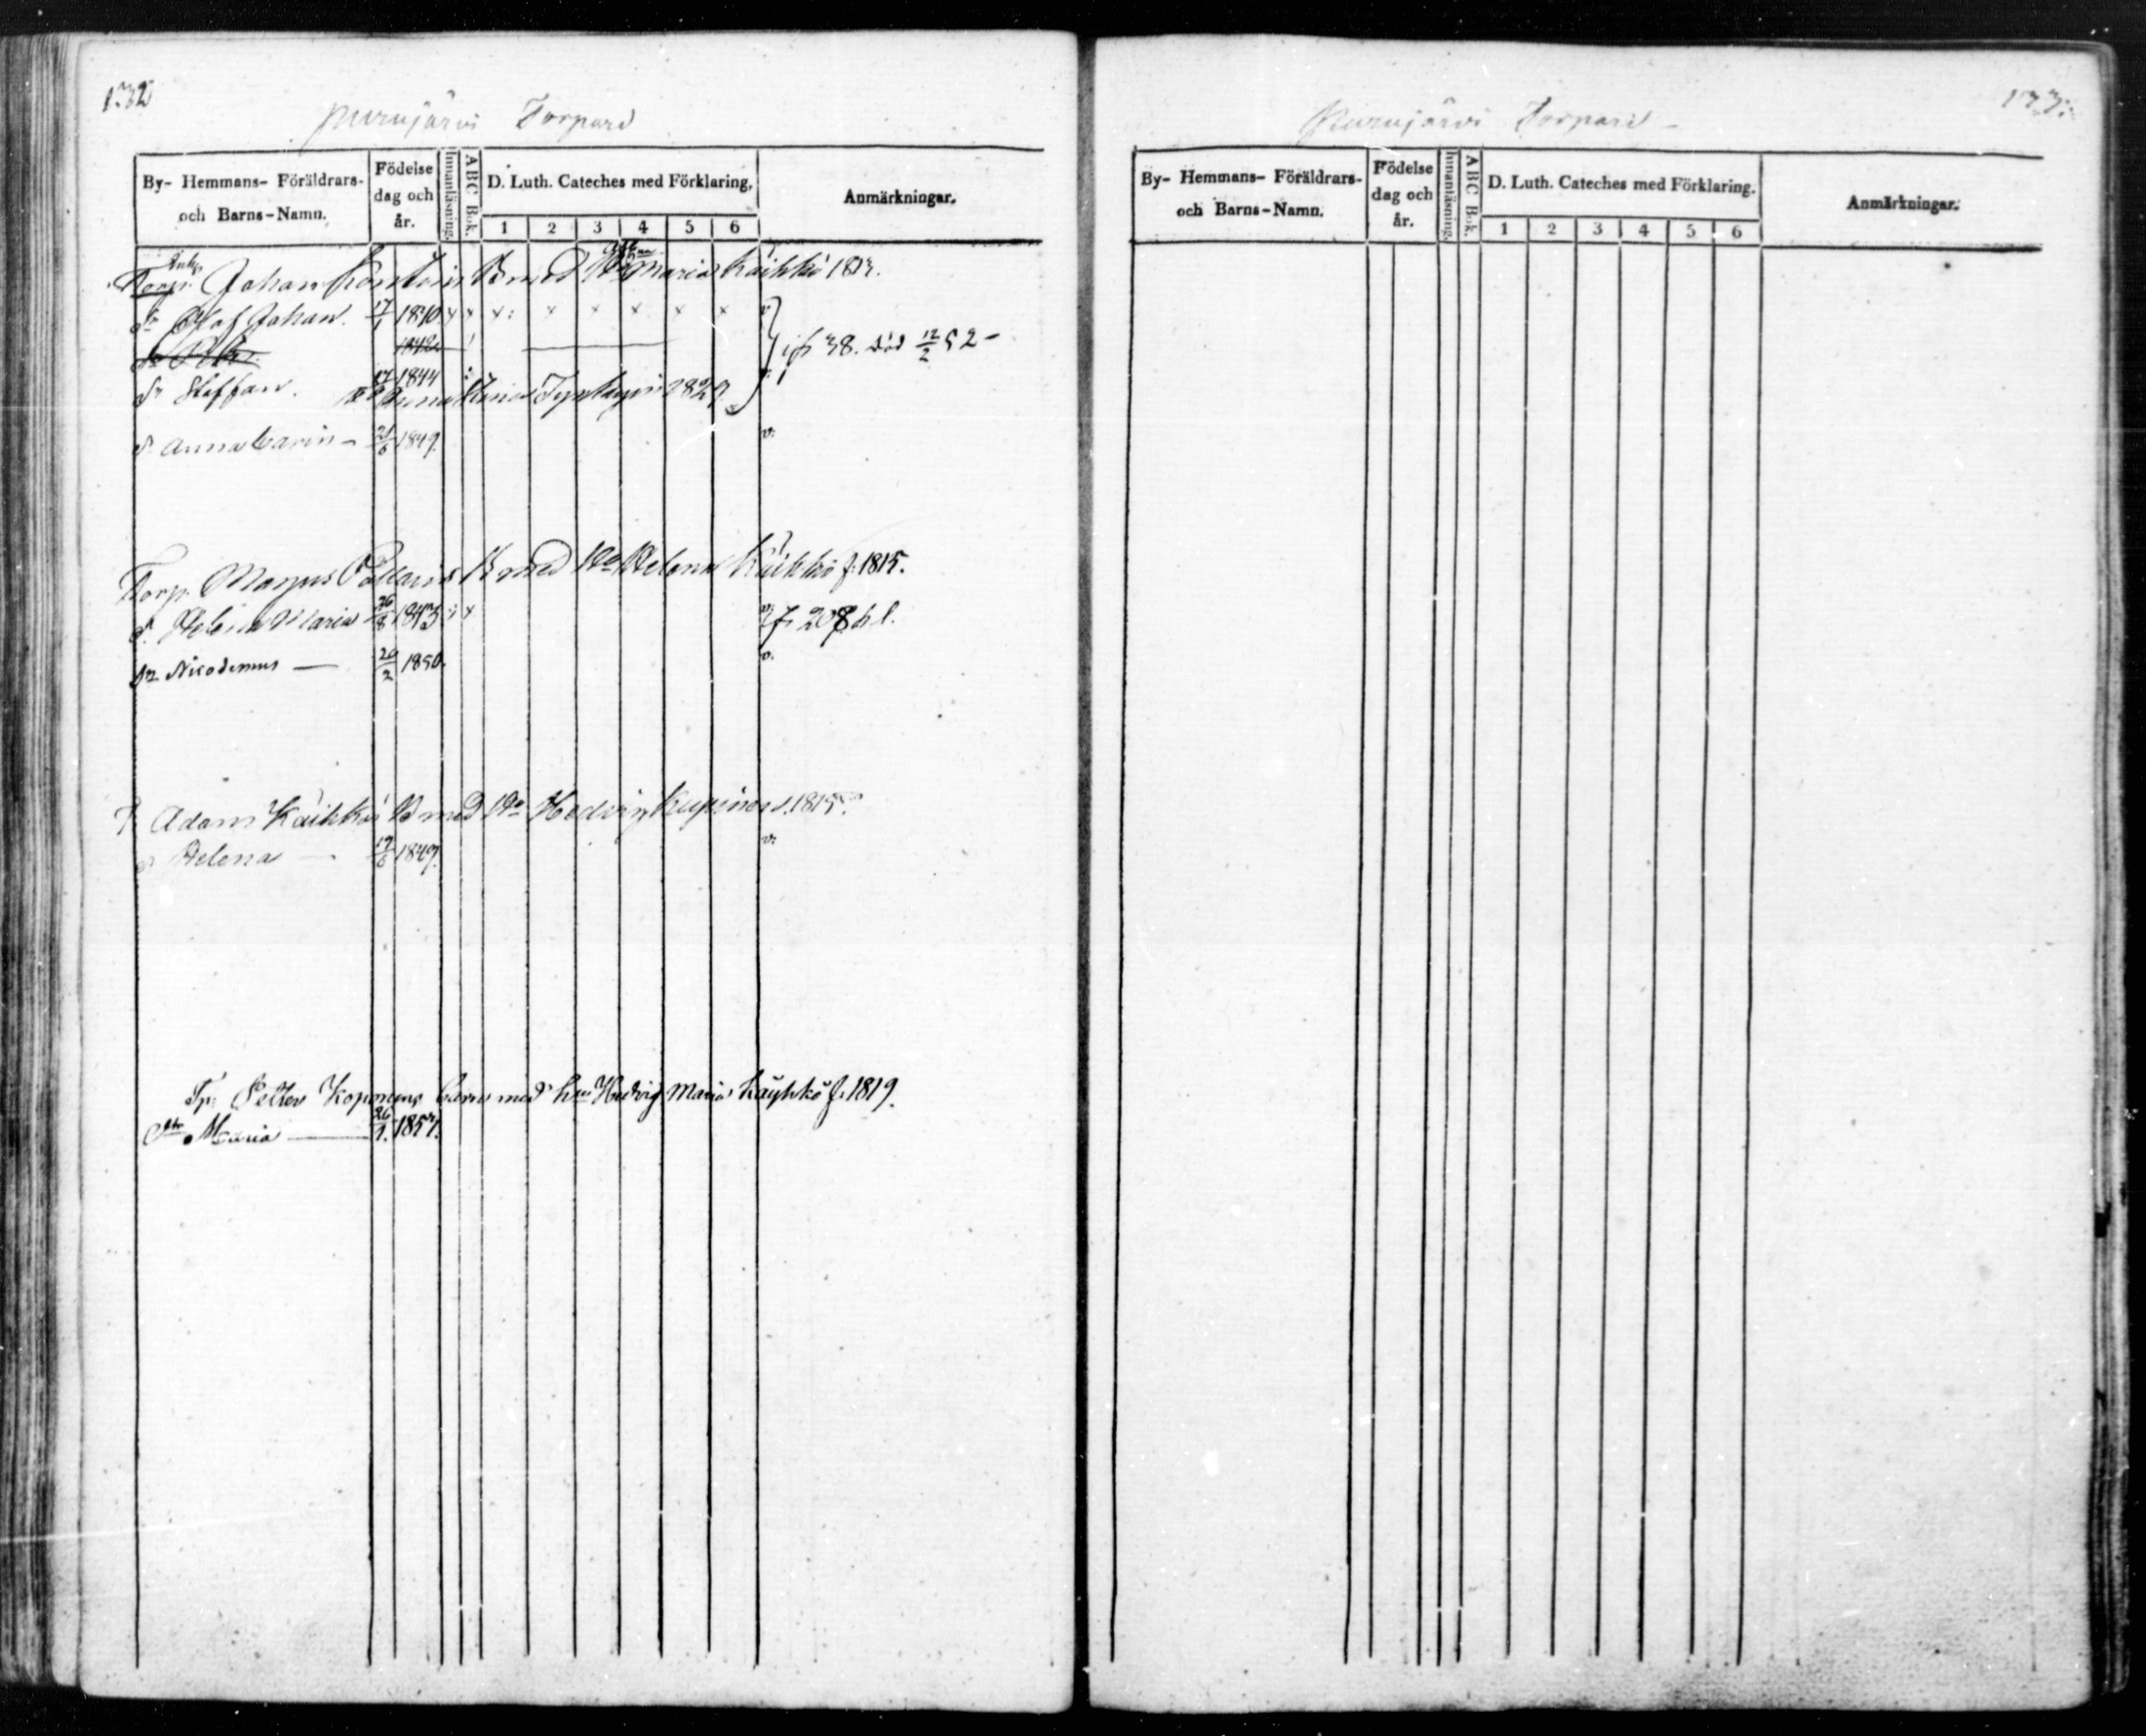 132
Purujärvi Torpare
By- Hemmans- Föräldrars- och Barns-Namn.
Födelse dag och år.
Innanläsning.
ABC Bok.
D. Luth. Cateches med Förklaring,
1 2 3 4 5 6
Anmärkningar.
Torp. Johan B med Maria Käihkö 1813.
Sn Olof Johan. 17/1 1840 x x x: x x x x x v
1842
Sn Staffan. 17 1844
if 38. död 12/2 52-
1829
d. Anna Carin - 21/6 1849. v.
Torp. Magnus B med Ho Helena Käihkö f. 1815.
d. Helena Maria 26/8 1843 x v. f. 208 h l.
Sn Nicodemus — 20/2 1850. v.
Adam Käihkös B med Ho Hedvig 1815.
d Helena — 19/6 1849. v.
Tp: Petter Koponens barn med hu Hedvig Maria Käyhkö f. 1819.
dtr Maria — 26/1. 1857.
133.
Purujärvi Torpare -
By- Hemmans- Föräldrars- och Barns-Namn.
Födelse dag och år.
Innanläsning.
ABC Bok.
D. Luth. Cateches med Förklaring.
1 2 3 4 5 6
Anmärkningar.